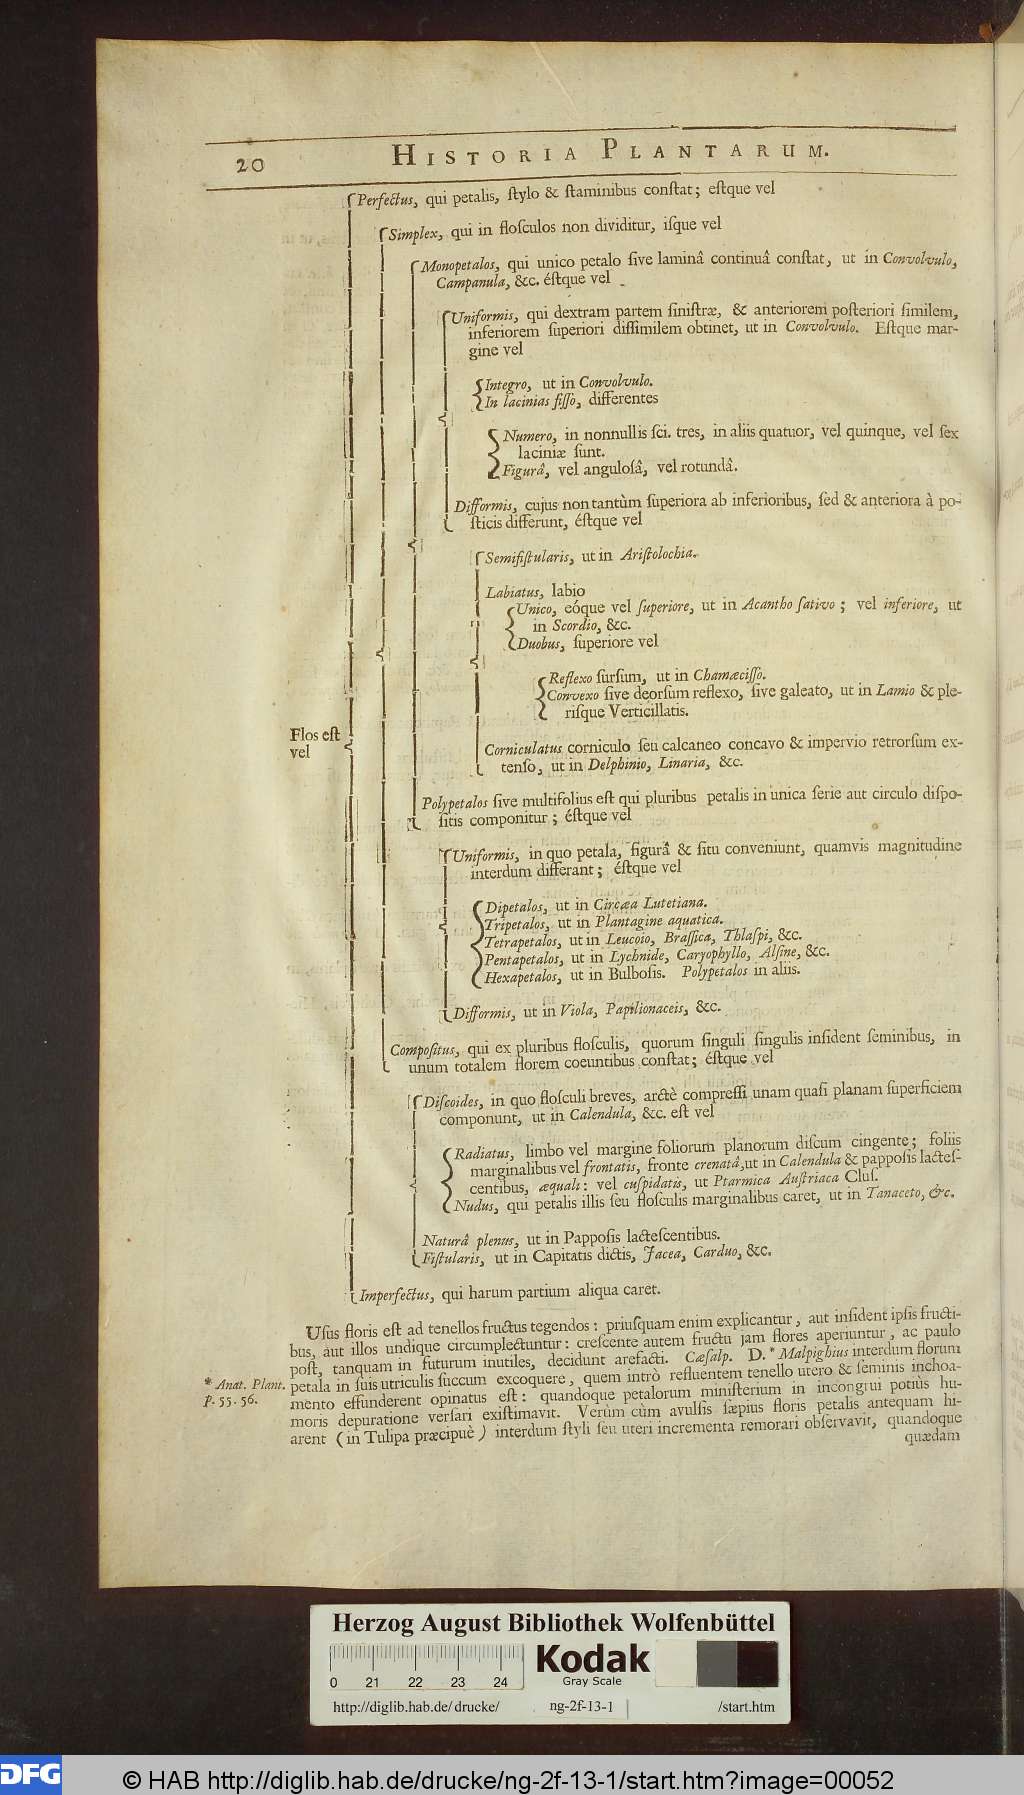 20 HISTORIA PLANTARUM.
Perfectus, qui petalis, ſtylo & ſtaminibus conſtat; eſtque vel
Simplex, qui in floſculos non dividitur, iſque vel
Monopetalos, qui unico petalo ſive laminâ continuâ conſtat, ut in Convolvulo,
Campanula, &c. éſtque vel
Uniformis, qui dextram partem ſiniſtræ, & anteriorem poſteriori ſimilem,
inferiorem ſuperiori diſſimilem obtinet, ut in Convolvulo. Eſtque mar-
gine vel
Integro, ut in Convolvulo.
In lacinias fiſſo, differentes
Numero, in nonnullis ſci. tres, in aliis quatuor, vel quinque, vel ſex
laciniæ ſunt.
Figurâ, vel anguloſâ, vel rotundâ.
Difformis, cujus non tantùm ſuperiora ab inferioribus, ſed & anteriora à po-
ſticis differunt, éſtque vel
Semifiſtularis, ut in Ariſtolochia.
Labiatus, labio
Unico, eóque vel ſuperiore, ut in Acantho ſativo; vel inferiore, ut
in Scordio, &c.
Duobus, ſuperiore vel
Reflexo ſurſum, ut in Chamæciſſo.
Convexo ſive deorſum reflexo, ſive galeato, ut in Lamio & ple-
riſque Verticillatis.
Flos eſt
vel
Corniculatus corniculo ſeu calcaneo concavo & impervio retrorſum ex-
tenſo, ut in Delphinio, Linaria, &c.
Polypetalos ſive multifolius eſt qui pluribus petalis in unica ſerie aut circulo diſpo-
ſitis componitur; éſtque vel
Uniformis, in quo petala, figurâ & ſitu conveniunt, quamvis magnitudine
interdum differant; éſtque vel
Dipetalos, ut in Circæa Lutetiana.
Tripetalos, ut in Plantagine aquatica.
Tetrapetalos, ut in Leucoio, Braſſica, Thlaſpi, &c.
Pentapetalos, ut in Lychnide, Caryophyllo, Alſine, &c.
Hexapetalos, ut in Bulboſis. Polypetalos in aliis.
Difformis, ut in Viola, Papilionaceis, &c.
Compoſitus, qui ex pluribus floſculis, quorum ſinguli ſingulis inſident ſeminibus, in
unum totalem florem coeuntibus conſtat; éſtque vel
Diſcoides, in quo floſculi breves, arctè compreſſi unam quaſi planam ſuperficiem
componunt, ut in Calendula, &c. eſt vel
Radiatus, limbo vel margine foliorum planorum diſcum cingente; foliis
marginalibus vel frontatis, fronte crenatâ, ut in Calendula & pappoſis lacteſ-
centibus, æquali: vel cuſpidatis, ut Ptarmica Auſtriaca Cluſ.
Nudus, qui petalis illis ſeu floſculis marginalibus caret, ut in Tanaceto, &c.
Naturâ plenus, ut in Pappoſis lacteſcentibus.
Fiſtularis, ut in Capitatis dictis, Jacea, Carduo, &c.
Imperfectus, qui harum partium aliqua caret.
Uſus floris eſt ad tenellos fructus tegendos: priuſquam enim explicantur, aut inſident ipſis fructi-
bus, aut illos undique circumplectuntur: creſcente autem fructu jam flores aperiuntur, ac paulo
poſt, tanquam in futurum inutiles, decidunt arefacti. Cæſalp. D. * Malpighius interdum florum
* Anat. Plant. petala in ſuis utriculis ſuccum excoquere, quem intrò refluentem tenello utero & ſeminis inchoa-
p. 55. 56. mento effunderent opinatus eſt: quandoque petalorum miniſterium in incongrui potiùs hu-
moris depuratione verſari exiſtimavit. Verùm cùm avulſis ſæpius floris petalis antequam hi-
arent (in Tulipa præcipuè) interdum ſtyli ſeu uteri incrementa remorari obſervavit, quandoque
quædam
Herzog August Bibliothek Wolfenbüttel
Kodak
Gray Scale
0 21 22 23 24
http://diglib.hab.de/drucke/ ng-2f-13-1 /start.htm
DFG © HAB http://diglib.hab.de/drucke/ng-2f-13-1/start.htm?image=00052